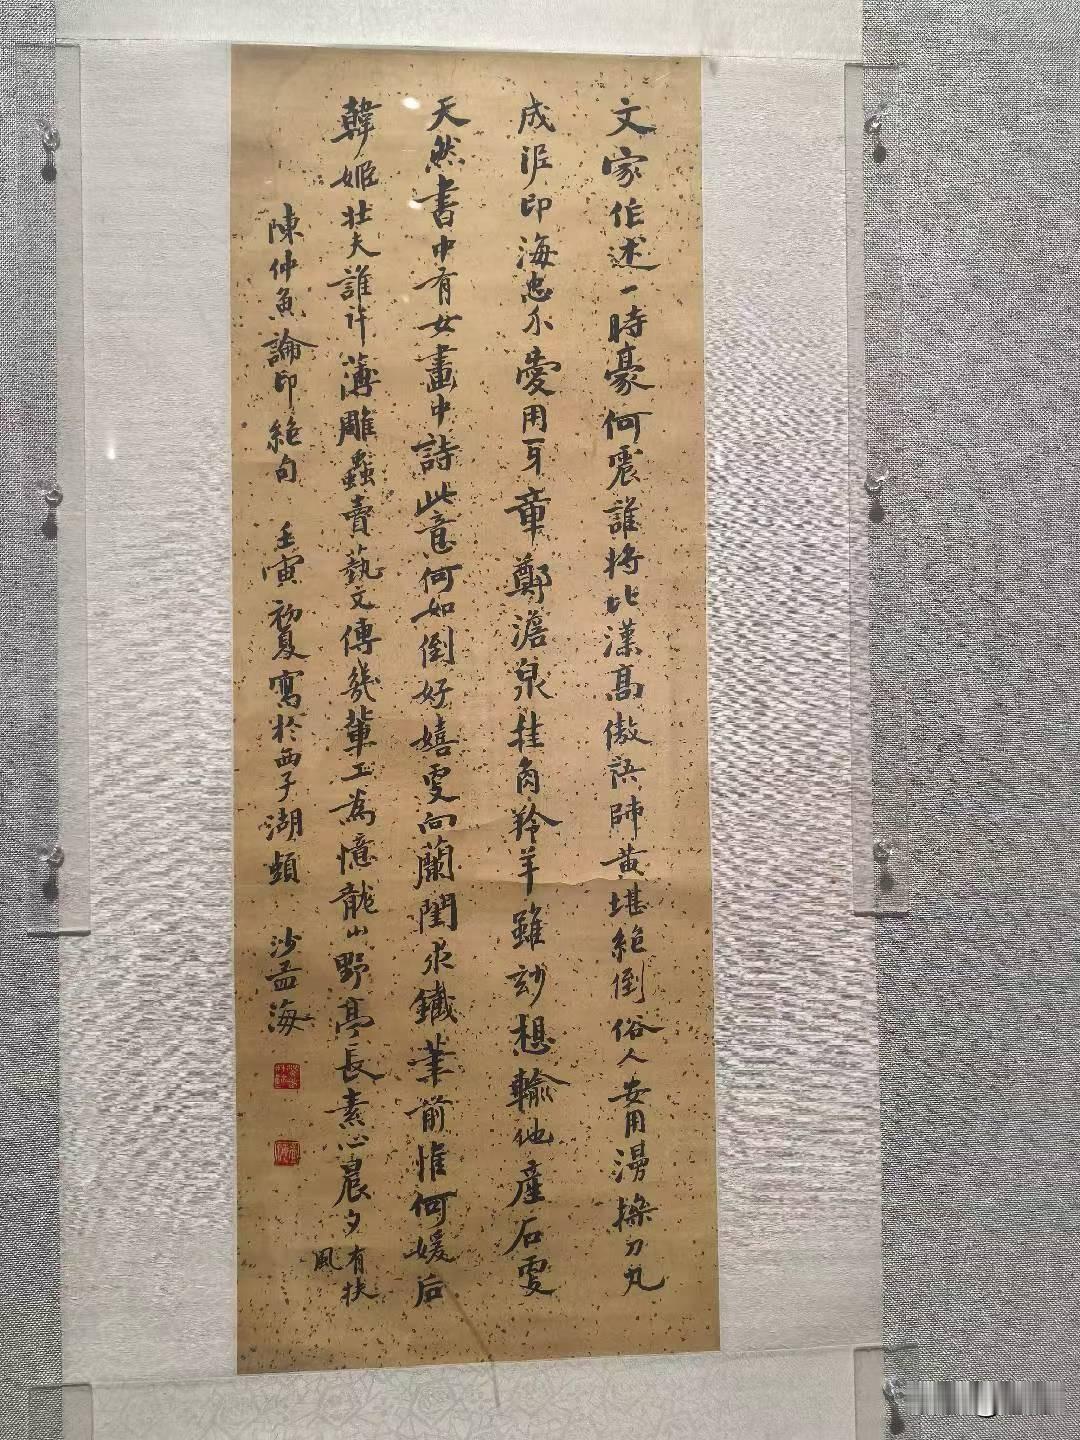 文家作述一時豪何震誰將比漢高傲語師黃堪絕倒俗人安用漫操刀丸
成泥印海忠介愛用牙章鄭澹泉挂角羚羊雖妙想輸他產石更
天然書中有女畫中詩此意何如倒好嬉更向蘭閨求鐵筆前惟何媛后
韓姬壯夫誰許薄雕蟲賣藝文傳幾輩工為憶龍山野亭長素心晨夕有扶
風
陳仲魚論印絕句 壬寅初夏寫於西子湖頭 沙孟海